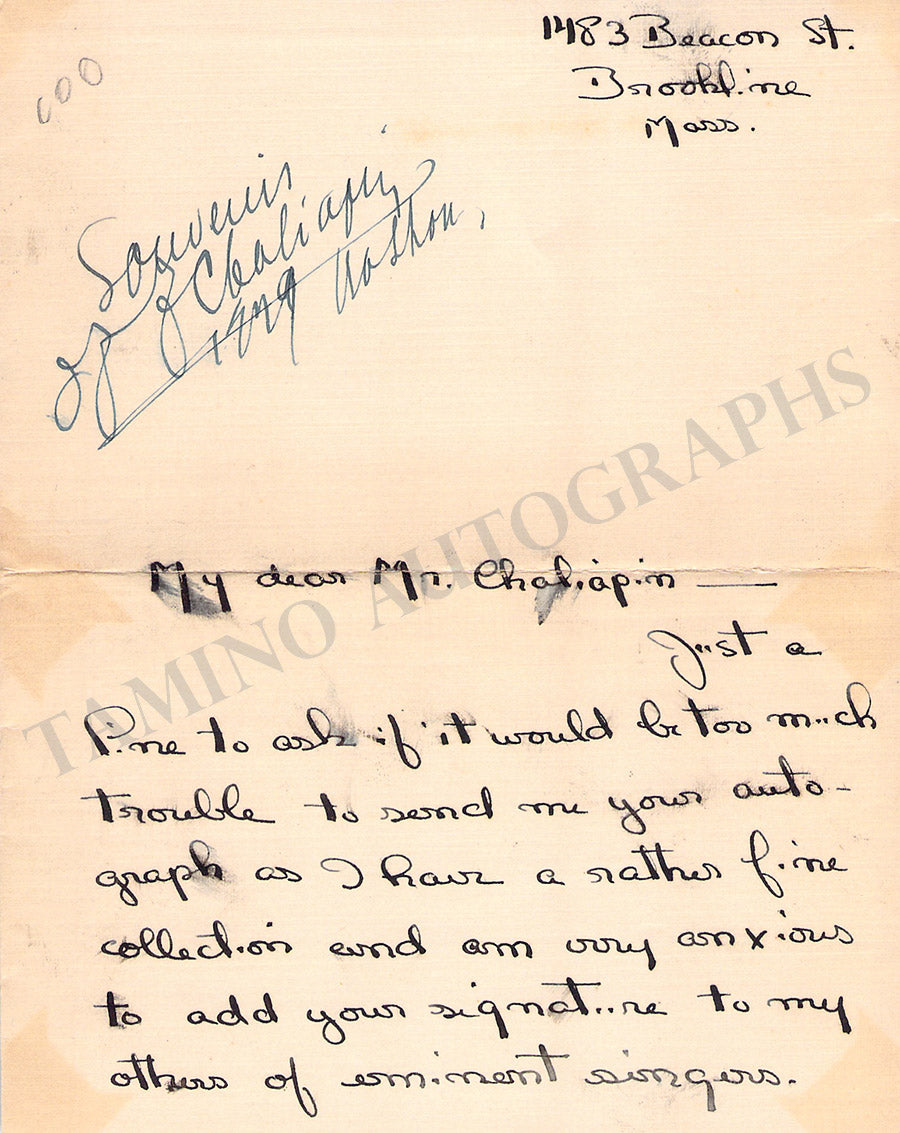 1483 Beacon St.
Brookline
Mass.
Souvenir
F Chaliapin
Boston,
My dear Mr. Chaliapin —
Just a
line to ask if it would be too much
trouble to send me your auto-
graph as I have a rather fine
collection and am very anxious
to add your signature to my
others of eminent singers.
TAMINO AUTOGRAPHS